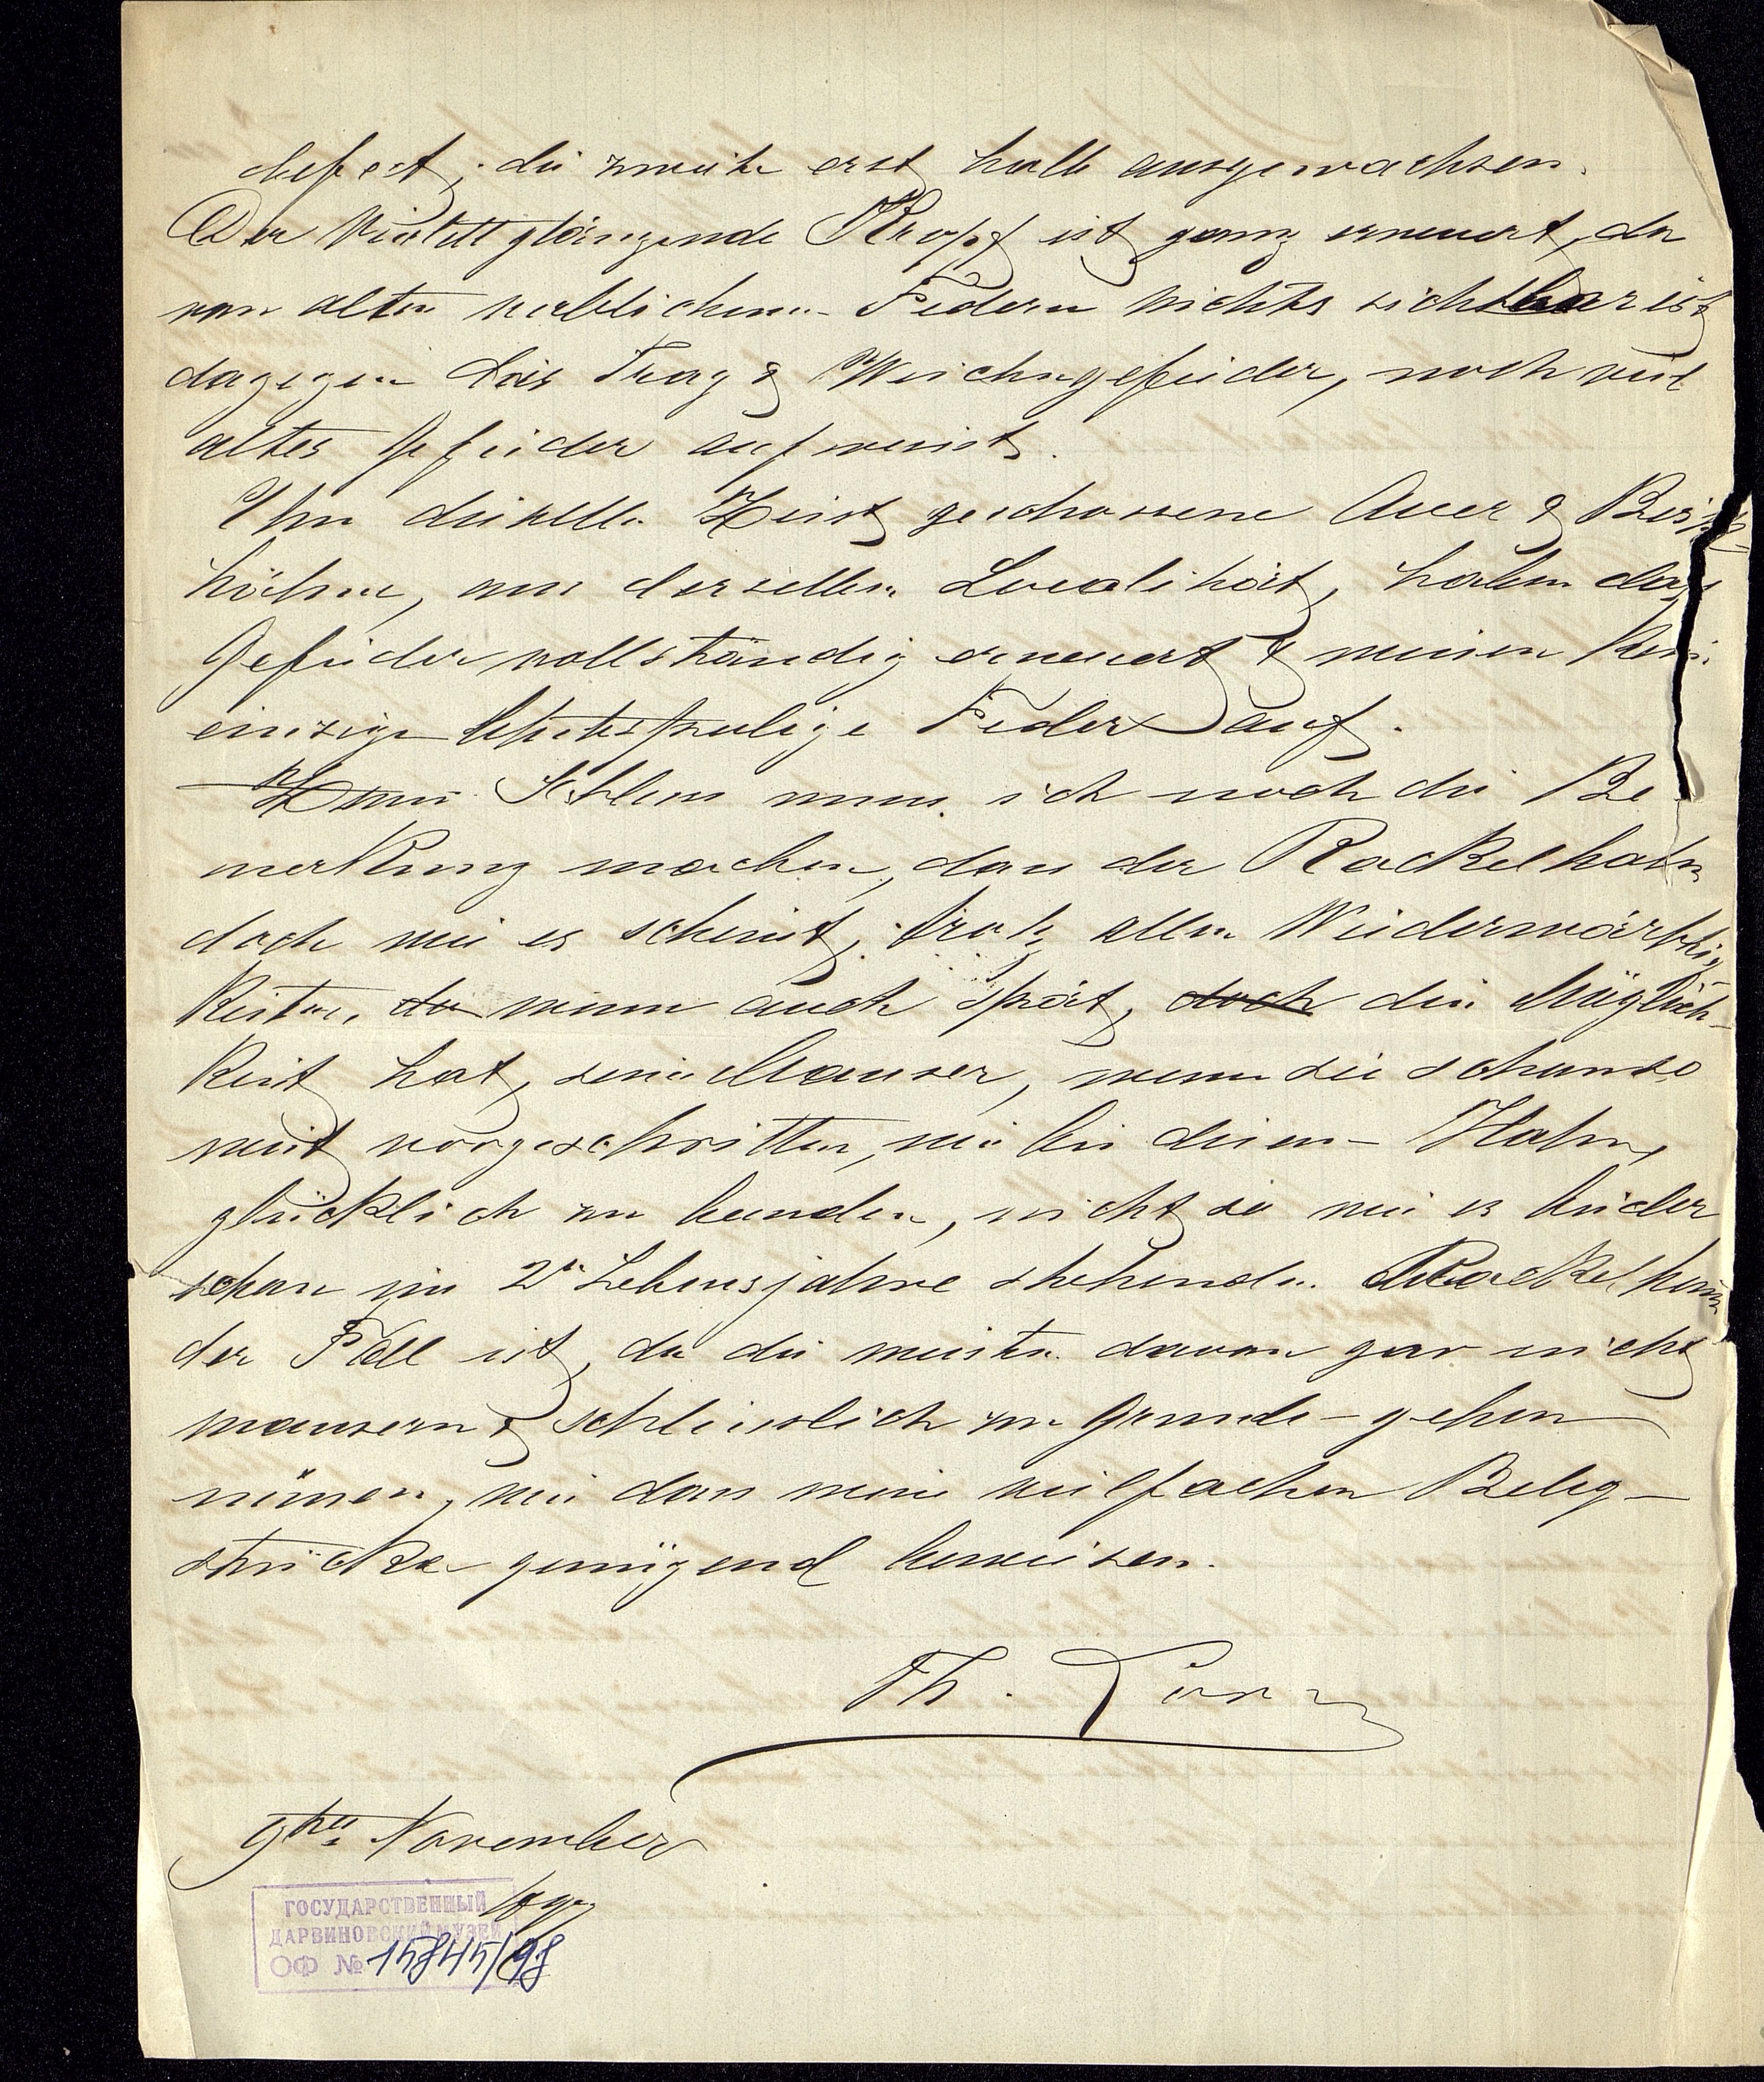 defect, die zweite erst halb ausgewachsen.
Der Violettglänzende Kropf ist ganz erneuert, da
von alten verblichenen Federn nichts sichtbar ist
dagegen das Trag & Weichengefieder, noch viel
altes Gefieder aufweist.
Um dieselbe Zeit geschossene Auer & Birk-
hähne, aus derselben Localität, haben das
Gefieder vollständig erneuert & weisen kein
einzige blutspulige Feder auf.
Zum Schluss muss ich noch die Be-
merkung machen, dass der Rackelhahn
doch wie es scheint, trotz allen Wiederwärthig
keiten, da wenn auch spät, doch die Möglich-
keit hat, seine Mauser, wenn sie schon so
weit vorgeschritten, wie bei diesem Hahn,
glücklich zu beenden, nicht so wie es bei der
schon im 2n Lebensjahre stehenden Rackelhenn
der Fall ist, da die meisten davon gar nicht
mausern & schliesslich zu Grunde-gehen
müssen, wie dass meine vielfachen Beleg-
stücke genügend beweisen.
Th. Lorenz
9ten November
ГОСУДАРСТВЕННЫЙ
ДАРВИНОВСКИЙ МУЗЕЙ
ОФ № 15845/98